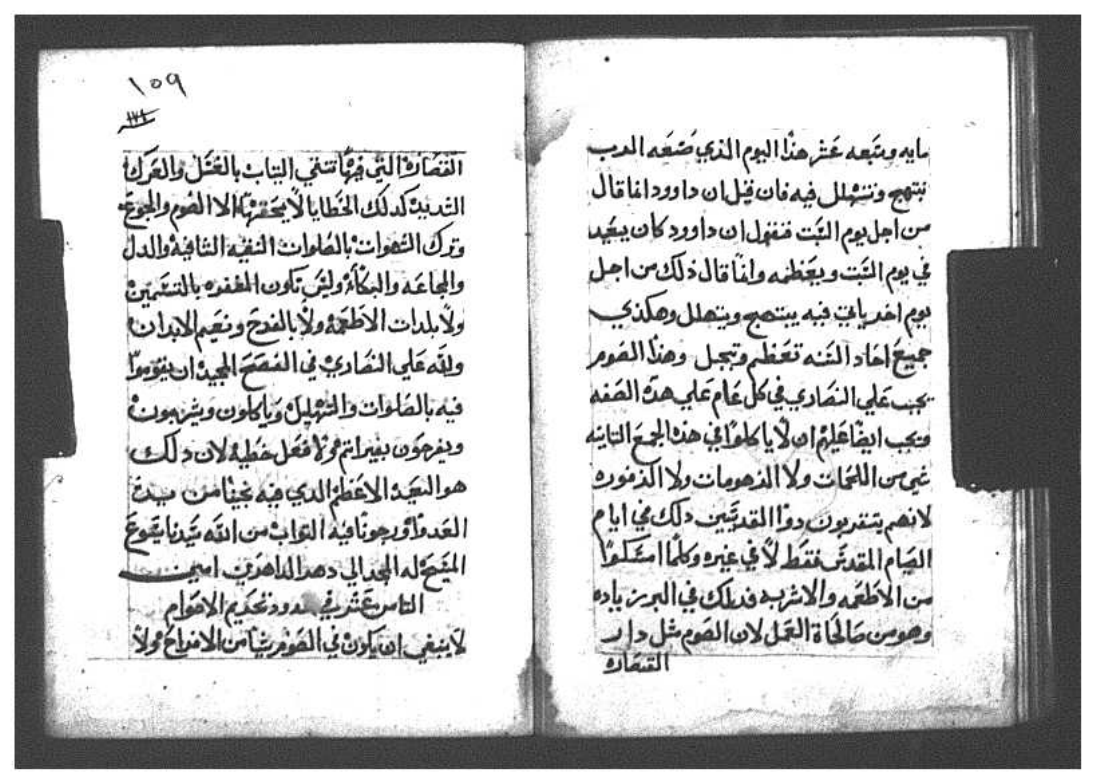 مايه وسبعه عشر هذا اليوم الذي صنعه الرب
نبتهج ونتهلل فيه فان قيل ان داوود انما قال
من اجل يوم السبت فنقول ان داوود كان يعيد
في يوم السبت ويعظمه وانما قال ذلك من اجل
يوم اخر ياتي فيه يبتهج ويتهلل وهكذي
جميع احاد السنه تعظم وتبجل وهذا الصوم
تجب علي النصاري في كل عام علي هذه الصفه
وتجب ايضا عليهم ان لا ياكلوا في هذه الجمع الثانيه
شي من اللحمات ولا الزهومات ولا الذفوره
لانهم يتقربون دوا القديسين ذلك في ايام
الصيام المقدس فقط لا في غيره وكلما امتسكوا
من الاطعمه والاشربه فذلك في البر زياده
وهو من صالحاة العمل لان الصوم مثل دار
القصاره
١٥٩
القصاره التي فيها تنقي التياب بالغسل والعرك
الشديد كذلك الخطايا لا يمحقها الا الصوم والجوع
وترك الشهوات بالصلوات النقيه الشافيه والدل
والمجاعه والبكاء وليس تكون المغفره بالتسمين
ولا بلدات الاطعمه ولا بالفرح ونعيم الابدان
ولله علي النصاري في الفصح المجيد ان يقوموا
فيه بالصلوات والتهليل وياكلون ويشربون
ويفرحون بغير اتم ولا فعل خطيه لان دلك
هو العيد الاعظم الدي فيه نجينا من يد
العدو ورجونا فيه التواب من الله سيدنا يسوع
المسيح له المجد الي دهر الداهرين امين
التامن عشر في حدود تحريم الاصوام
لا ينبغي ان يكون في الصوم شيا من الافراح ولا